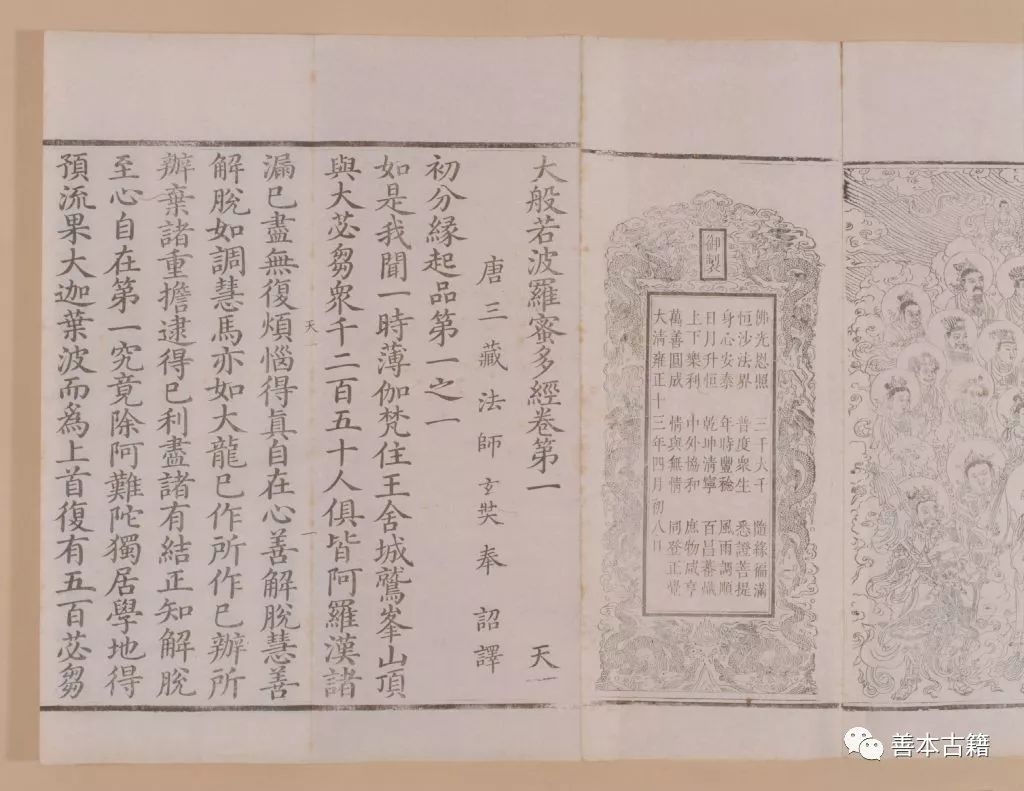 御製
佛光恩照 三千大千 隨緣福滿
恒沙法界 普度眾生 悉證菩提
身心安泰 年時豐稔 風雨調順
日月升恒 乾坤清寧 百昌蕃熾
上下樂利 中外協和 庶物咸亨
萬善圓成 情與無情 同登正覺
大清雍正十三年四月初八日
大般若波羅蜜多經卷第一 天一
唐三藏法師玄奘奉 詔譯
初分緣起品第一之一
如是我聞一時薄伽梵住王舍城鷲峯山頂
與大苾芻衆千二百五十人俱皆阿羅漢諸
天一 一
漏已盡無復煩惱得真自在心善解脫慧善
解脫如調慧馬亦如大龍已作所作已辦所
辦棄諸重擔逮得已利盡諸有結正知解脫
至心自在第一究竟除阿難陀獨居學地得
預流果大迦葉波而爲上首復有五百苾芻
善本古籍